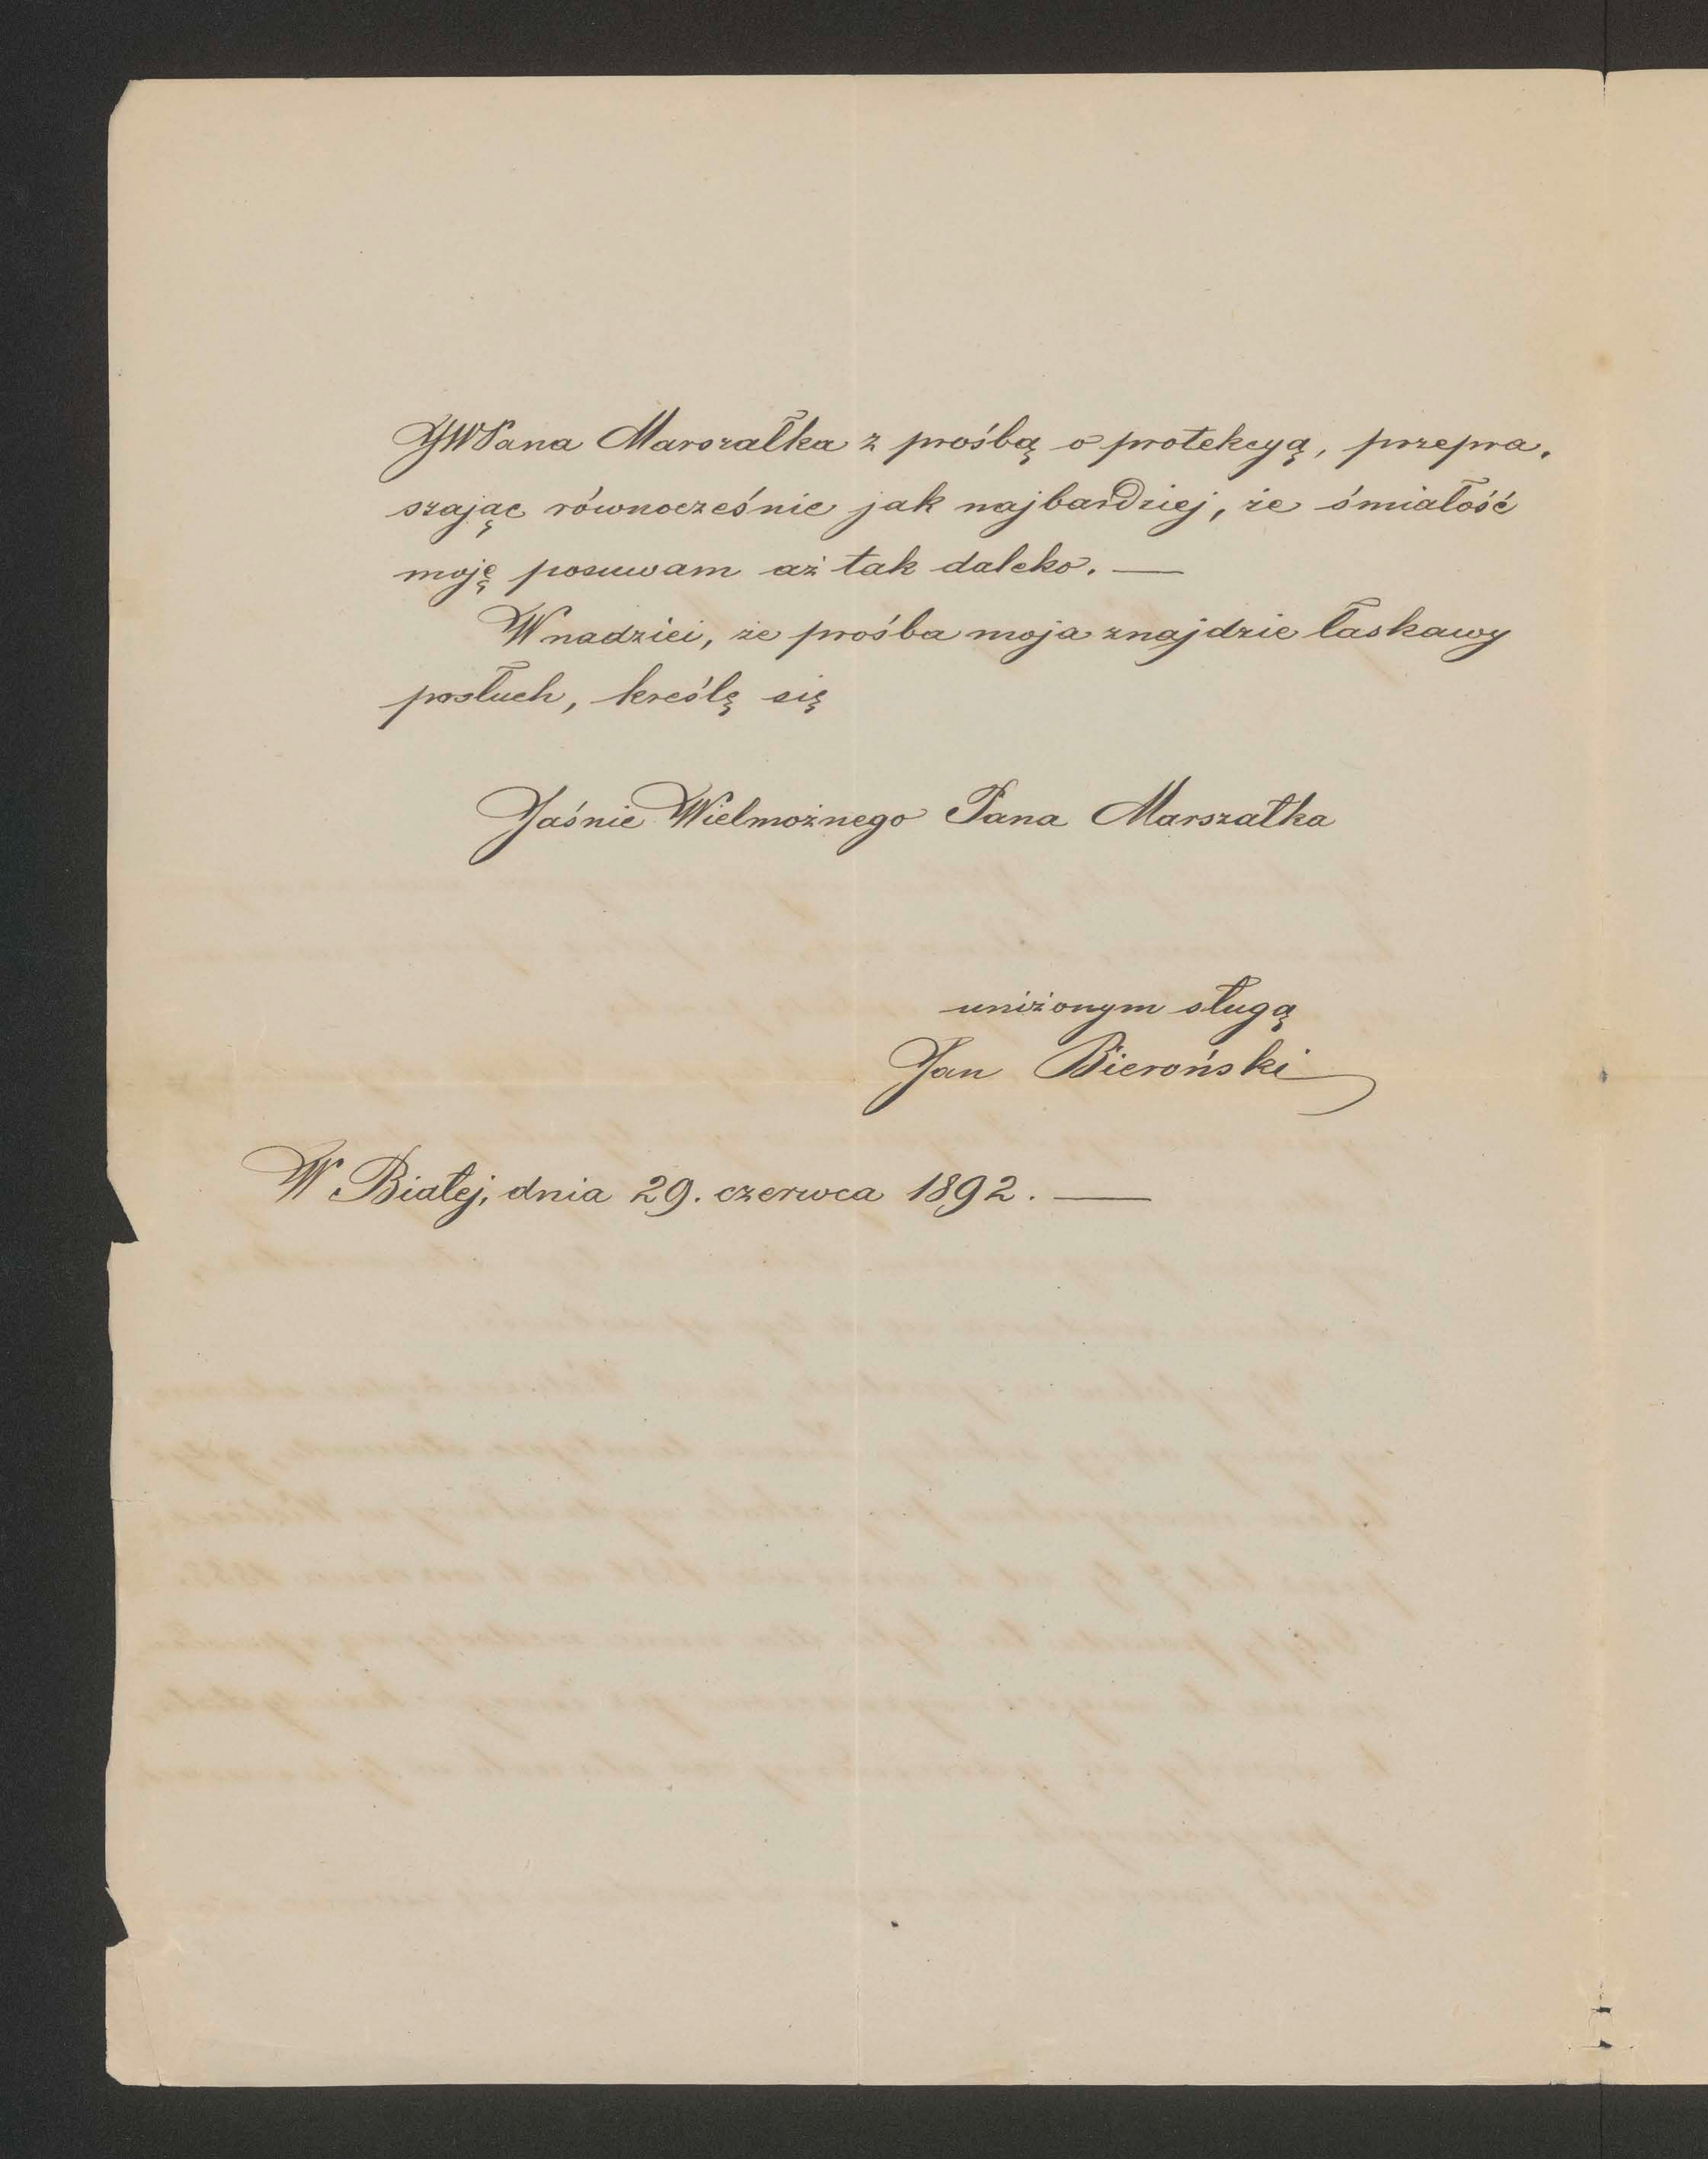 JWPana Marszałka z prośbą o protekcyą, przepra,
szając równocześnie jak najbardziej, że śmiałość
moję posuwam aż tak daleko. —
W nadziei, że prośba moja znajdzie łaskawy
posłuch, kreślę się
Jaśnie Wielmożnego Pana Marszałka
uniżonym sługą
Jan Bieroński
W Białej, dnia 29. czerwca 1892. —